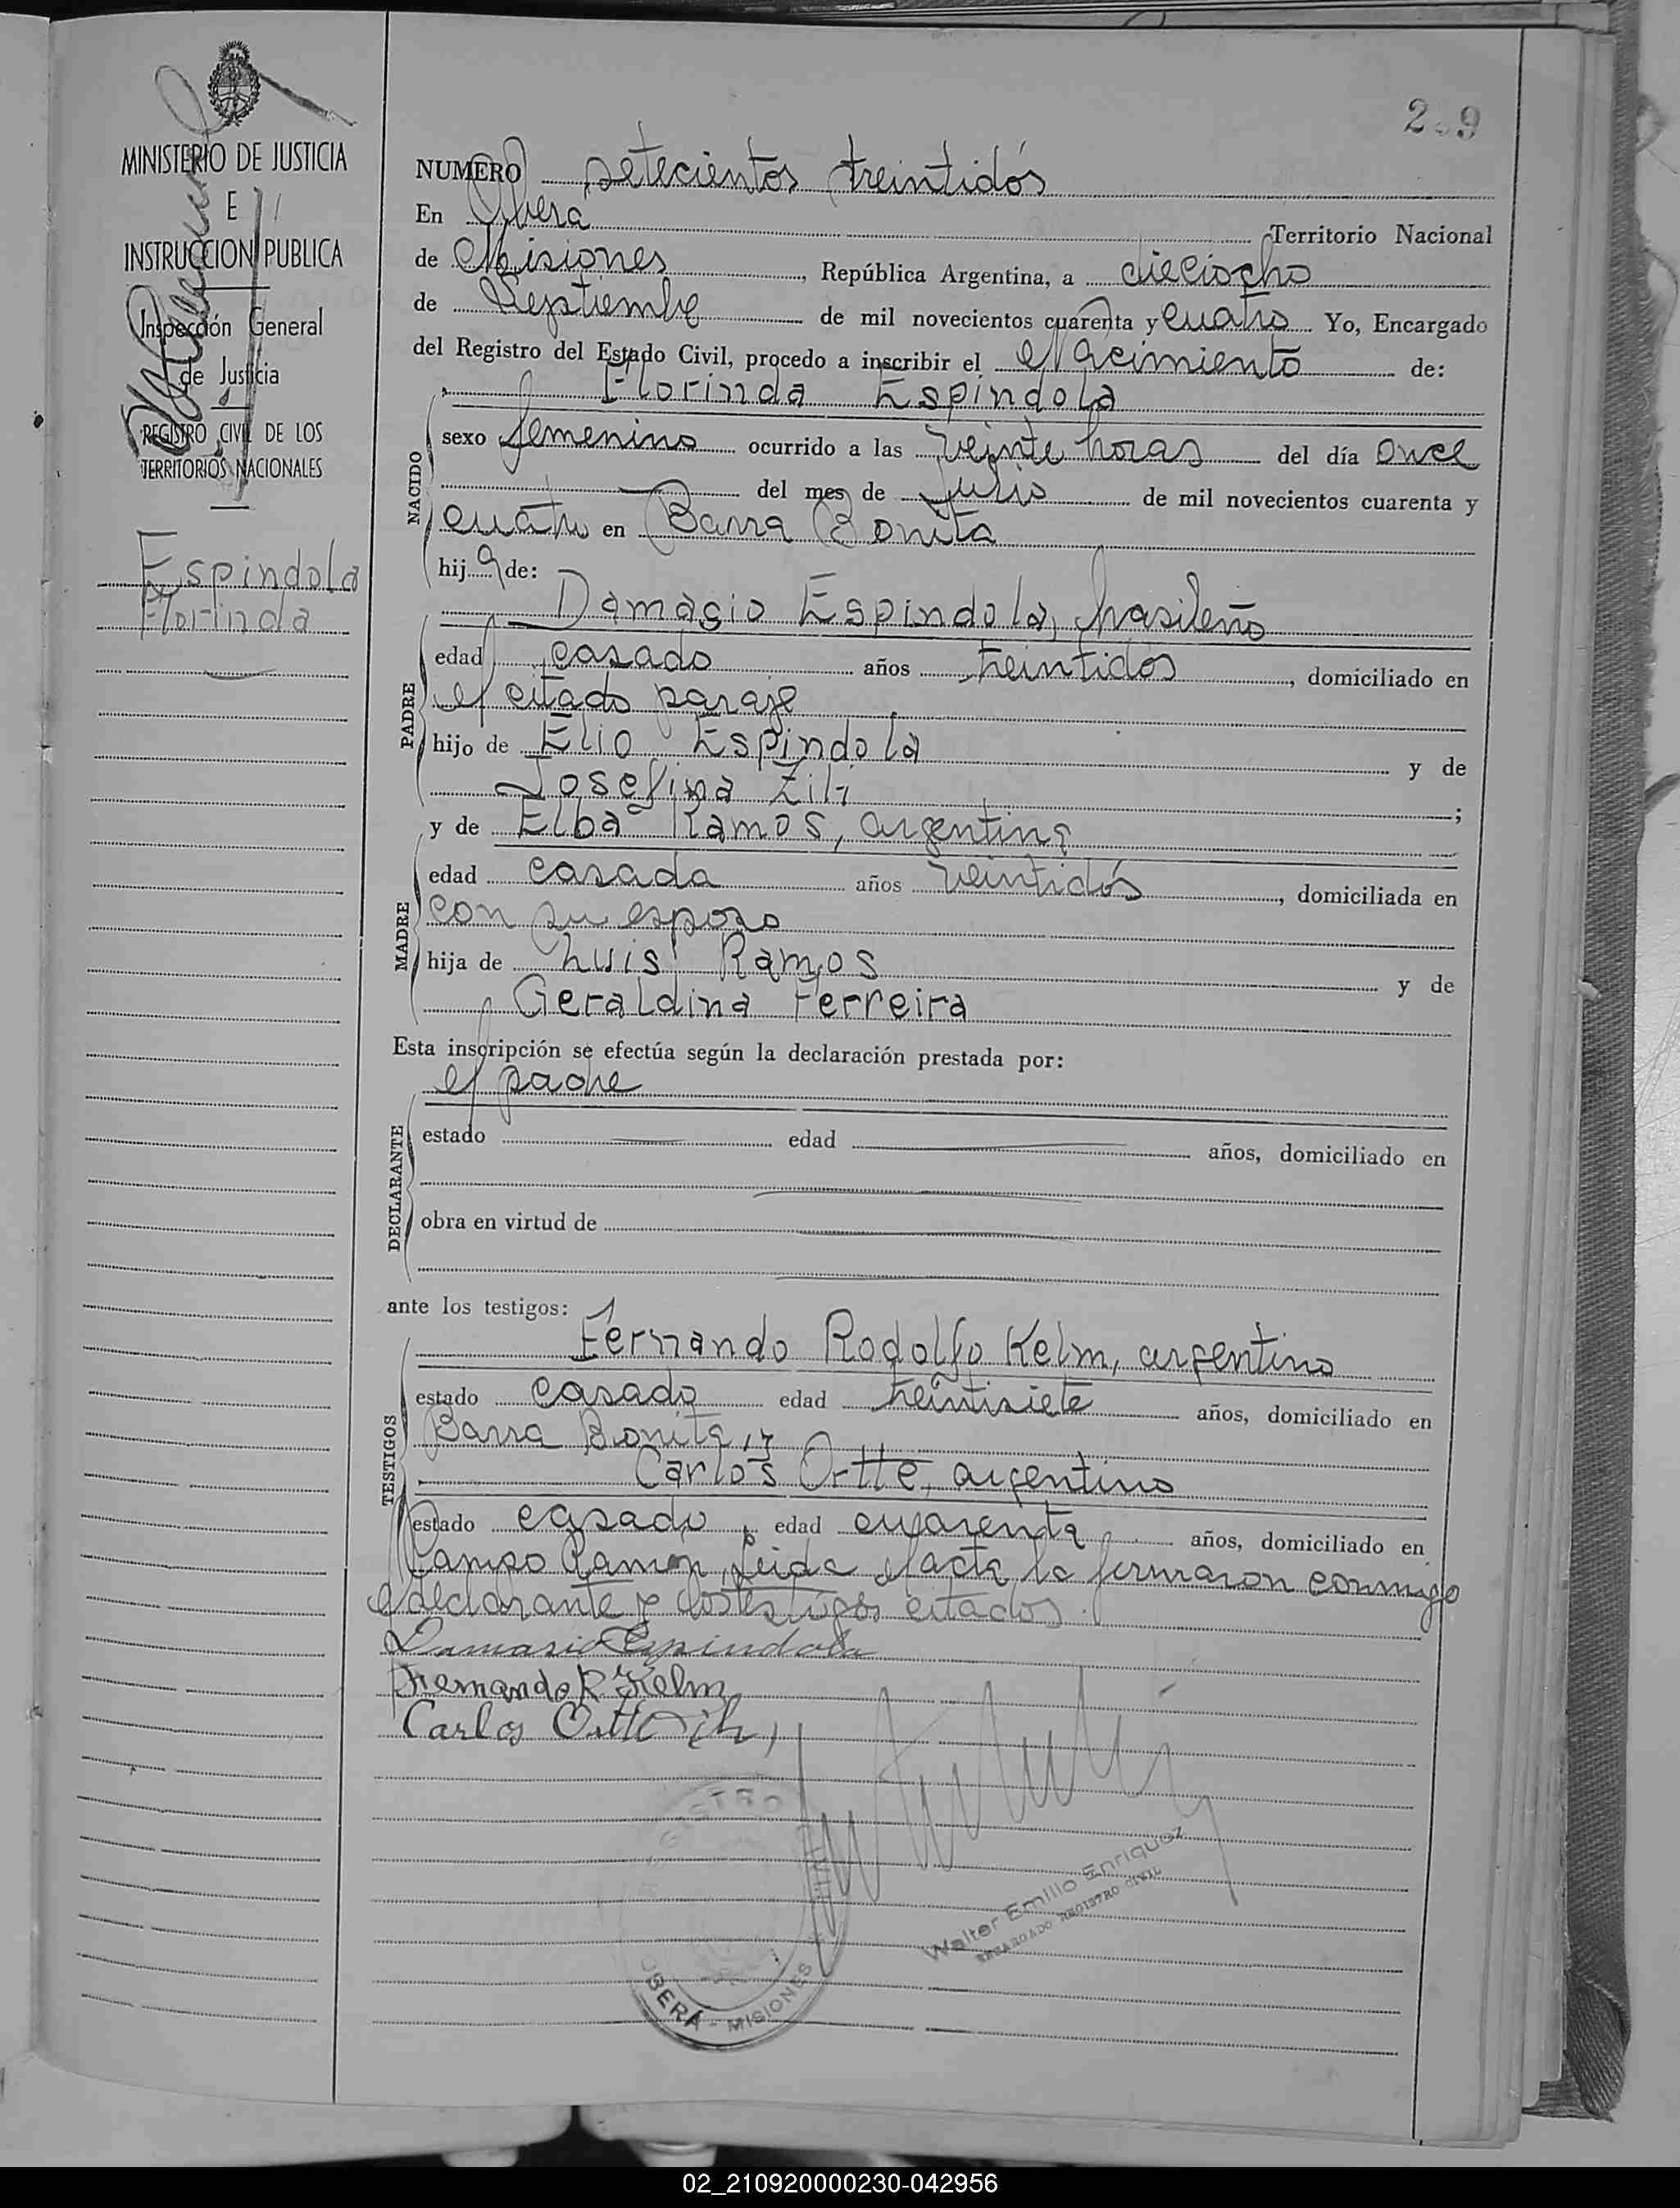 MINISTERIO DE JUSTICIA
E
INSTRUCCION PUBLICA
Inspección General
de Justicia
REGISTRO CIVIL DE LOS
TERRITORIOS NACIONALES
Espindola
Florinda
NUMERO setecientos treintidós
En Obera Territorio Nacional
de Misiones, República Argentina, a dieciocho
de Septiembre de mil novecientos cuarenta y cuatro Yo, Encargado
del Registro del Estado Civil, procedo a inscribir el Nacimiento de:
Florinda Espíndola
NACIDO
sexo femenino ocurrido a las veinte horas del día once
del mes de Julio de mil novecientos cuarenta y
cuatro en Barra Bonita
hija de:
Damasio Espindola, brasileño
PADRE
edad casado años treintidós, domiciliado en
el citado paraje
hijo de Elio Espindola y de
Josefina Zili;
y de Elba Ramos, argentina
MADRE
edad casada años veintidós, domiciliada en
con su esposo
hija de Luis Ramos y de
Geraldina Ferreira
Esta inscripción se efectúa según la declaración prestada por:
el padre
DECLARANTE
estado edad años, domiciliado en
obra en virtud de
ante los testigos:
TESTIGOS
Fernando Rodolfo Kelm, argentino
estado casado edad treintisiete años, domiciliado en
Barra Bonita, y
Carlos Ortte, argentino
estado casado, edad cuarenta años, domiciliado en
Campo Ramon, leida el acta la firmaron conmigo
el declarante y los testigos citados.
Damasio Espindola
Fernando R. Kelm
Carlos Ortte (h)
Walter Emilio Enriquez
ENCARGADO REGISTRO CIVIL
REGISTRO CIVIL
OBERÁ - MISIONES
02_210920000230-042956